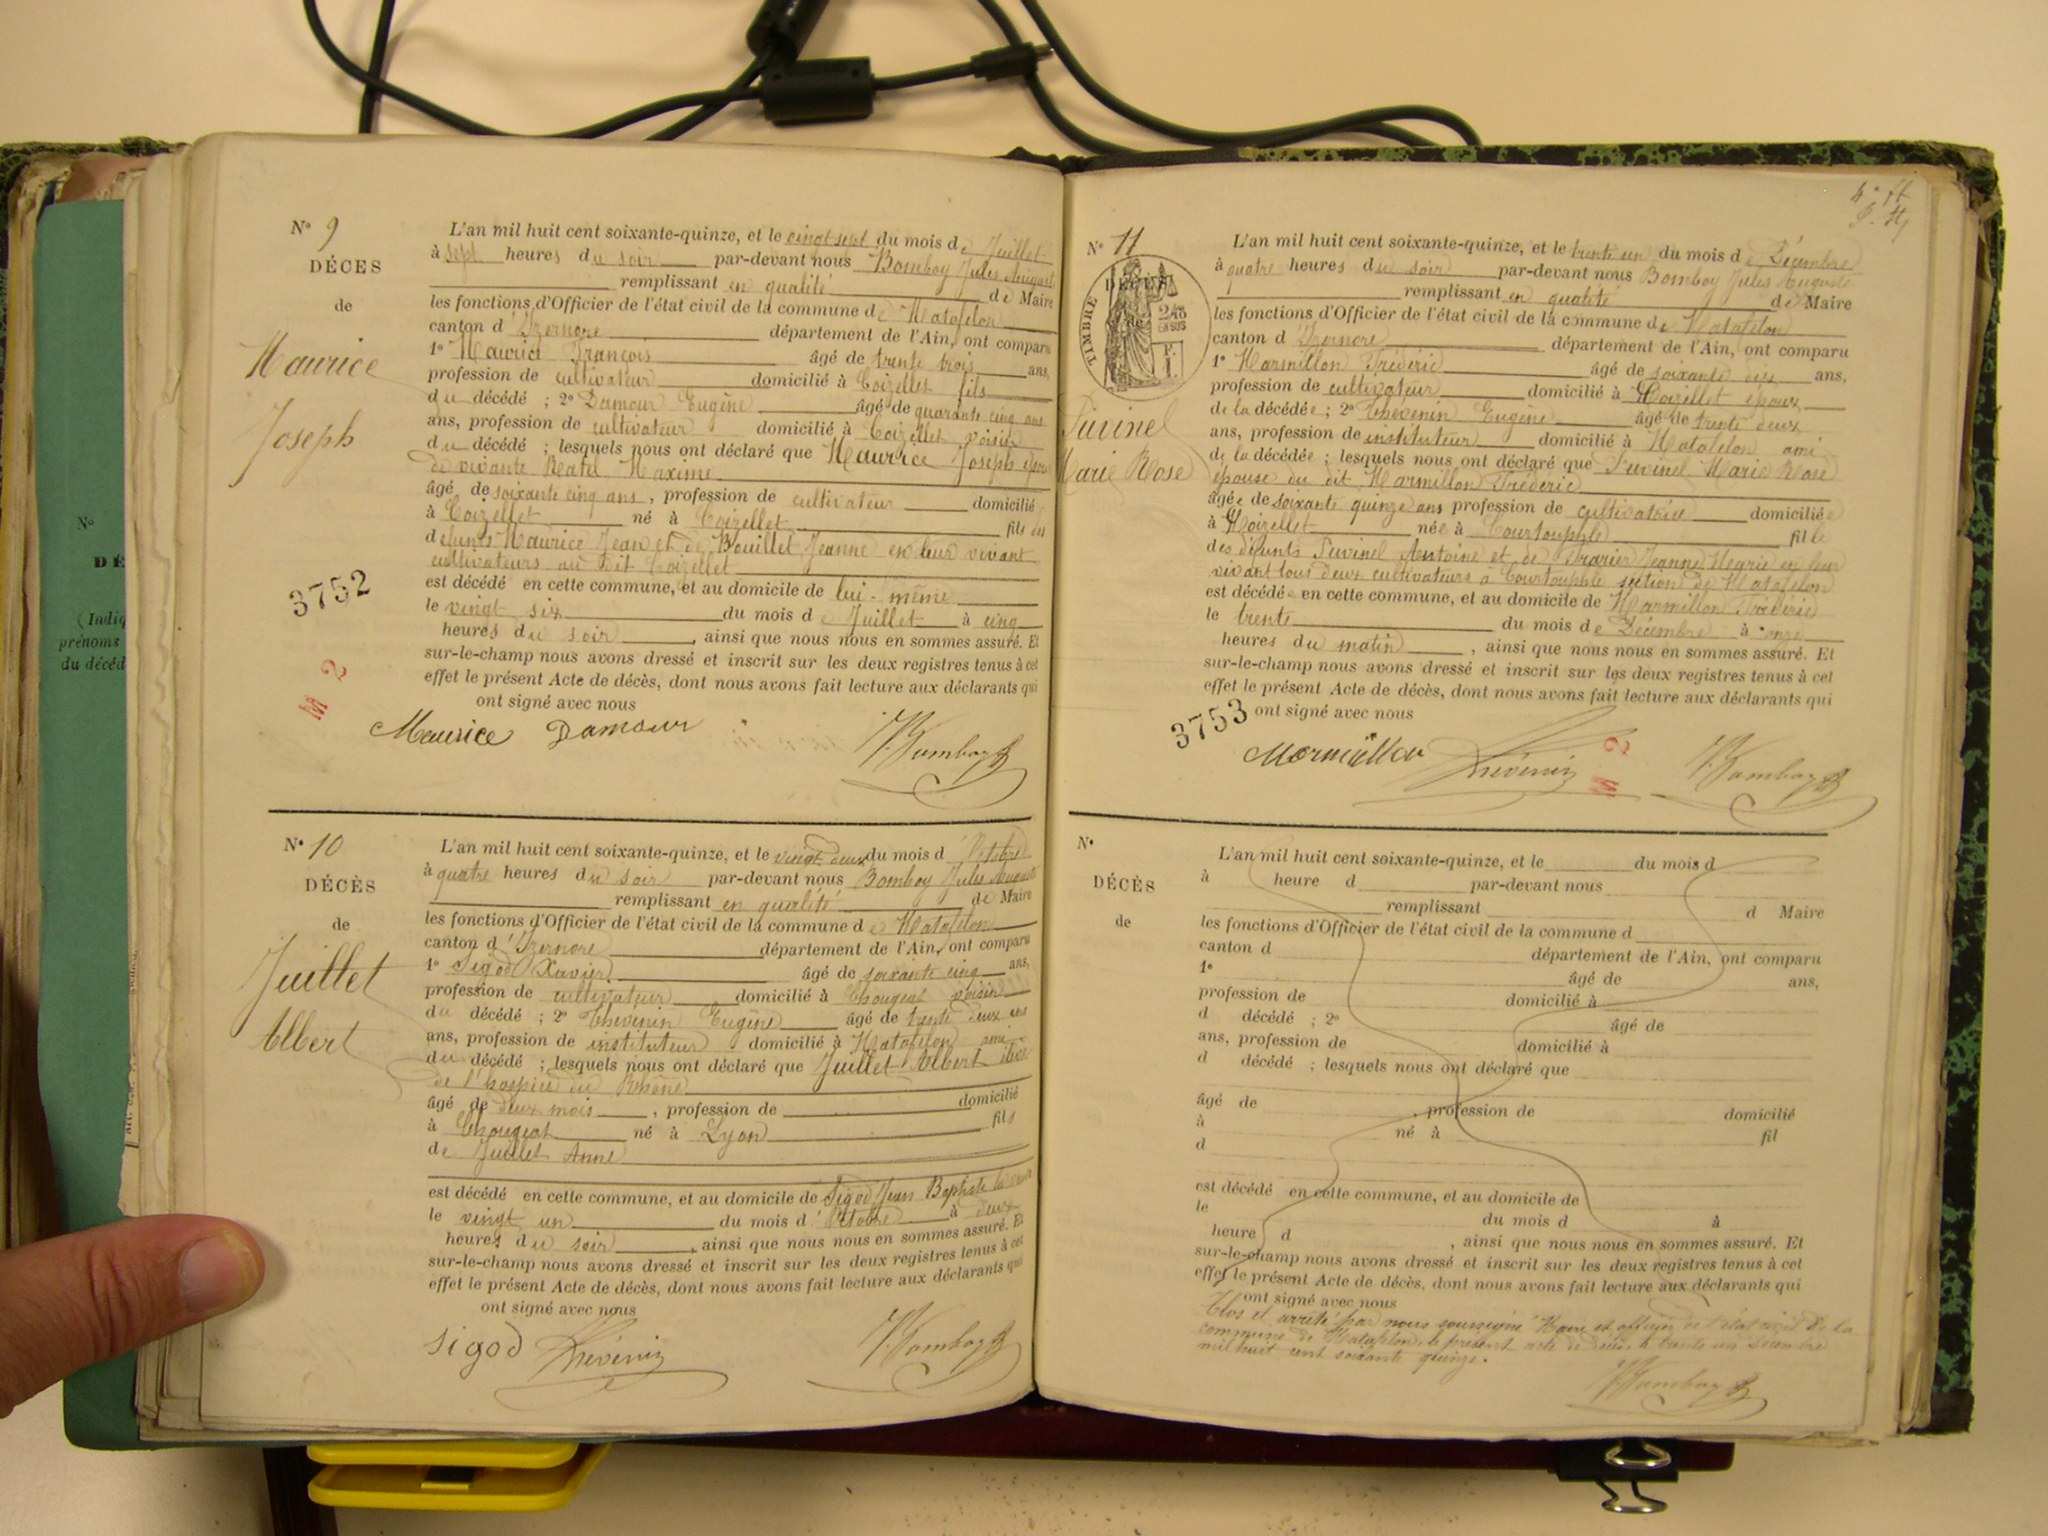 N° 9
DÉCES
de
Maurice
Joseph
3752
M 2
L'an mil huit cent soixante-quinze, et le vingt sept du mois de Juillet
à sept heures du soir par-devant nous Bomboy Jules August
remplissant en qualité de Maire
les fonctions d'Officier de l'état civil de la commune de Matafelon
canton d'Izernore département de l'Ain, ont comparu
1° Maurice François âgé de trente trois ans,
profession de cultivateur domicilié à Coizellet fils
du décédé ; 2° Damour Eugène âgé de quarante cinq ans
ans, profession de cultivateur domicilié à Coizellet voisin
du décédé ; lesquels nous ont déclaré que Maurice Joseph époux
de vivante Maxime
âgé de soixante cinq ans, profession de cultivateur domicilié
à Coizellet né à Coizellet fils des
défunts Maurice Jean et de Bouillet Jeanne en leur vivant
cultivateurs au dit Coizellet
est décédé en cette commune, et au domicile de lui-même
le vingt six du mois de Juillet à cinq
heures du soir, ainsi que nous nous en sommes assuré. Et
sur-le-champ nous avons dressé et inscrit sur les deux registres tenus à cet
effet le présent Acte de décès, dont nous avons fait lecture aux déclarants qui
ont signé avec nous
Maurice Damour J. Bomboy
N° 10
DÉCÈS
de
Juillet
Albert
L'an mil huit cent soixante-quinze, et le vingt deux du mois d'Octobre
à quatre heures du soir par-devant nous Bomboy Jules August
remplissant en qualité de Maire
les fonctions d'Officier de l'état civil de la commune de Matafelon
canton d'Izernore département de l'Ain, ont comparu
1° Sigod Xavier âgé de soixante cinq ans,
profession de cultivateur domicilié à Chougeat voisin
du décédé ; 2° Thévenin Eugène âgé de trente deux ans
ans, profession de instituteur domicilié à Matafelon ami
du décédé ; lesquels nous ont déclaré que Juillet Albert élève
de l'hospice du Rhône
âgé de deux mois, profession de domicilié
à Chougeat né à Lyon fils
de Juillet Anne
est décédé en cette commune, et au domicile de Sigod Jean Baptiste
le vingt un du mois d'Octobre à deux
heures du soir, ainsi que nous nous en sommes assuré. Et
sur-le-champ nous avons dressé et inscrit sur les deux registres tenus à cet
effet le présent Acte de décès, dont nous avons fait lecture aux déclarants qui
ont signé avec nous
sigod Thévenin J. Bomboy
N° 11
DÉCÈS
de
TIMBRE
2/10
EN SUS
Puvinel
Marie Rose
L'an mil huit cent soixante-quinze, et le trente un du mois de Décembre
à quatre heures du soir par-devant nous Bomboy Jules Auguste
remplissant en qualité de Maire
les fonctions d'Officier de l'état civil de la commune de Matafelon
canton d'Izernore département de l'Ain, ont comparu
1° Marmillon Frédéric âgé de soixante dix ans,
profession de cultivateur domicilié à Coizellet époux
de la décédée ; 2° Thévenin Eugène âgé de trente deux
ans, profession de instituteur domicilié à Matafelon ami
de la décédée ; lesquels nous ont déclaré que Puvinel Marie Rose
épouse du dit Marmillon Frédéric
âgée de soixante quinze ans profession de cultivatrice domiciliée
à Coizellet née à Courtouphle fille
des défunts Puvinel Antoine et de Jeanne Marie en leur
vivant tous deux cultivateurs à Courtouphle section de Matafelon
est décédée en cette commune, et au domicile de Marmillon Frédéric
le trente du mois de Décembre à onze
heures du matin, ainsi que nous nous en sommes assuré. Et
sur-le-champ nous avons dressé et inscrit sur les deux registres tenus à cet
effet le présent Acte de décès, dont nous avons fait lecture aux déclarants qui
ont signé avec nous
3753
M 2
Marmillon Thévenin J. Bomboy
N°
DÉCÈS
de
L'an mil huit cent soixante-quinze, et le du mois d
à heure d par-devant nous
remplissant d Maire
les fonctions d'Officier de l'état civil de la commune d
canton d département de l'Ain, ont comparu
1° âgé de ans,
profession de domicilié à
d décédé ; 2° âgé de
ans, profession de domicilié à
d décédé ; lesquels nous ont déclaré que
âgé de , profession de domicilié
à né à fil
d
est décédé en cette commune, et au domicile de
le du mois d à
heure d , ainsi que nous nous en sommes assuré. Et
sur-le-champ nous avons dressé et inscrit sur les deux registres tenus à cet
effet le présent Acte de décès, dont nous avons fait lecture aux déclarants qui
ont signé avec nous
Clos et arrêté par nous soussigné Maire et officier de l'état civil de la
commune de Matafelon, le présent acte de décès, le trente un Décembre
mil huit cent soixante quinze.
J. Bomboy
N°
DÉ
(Indiq
prénoms
du décéd